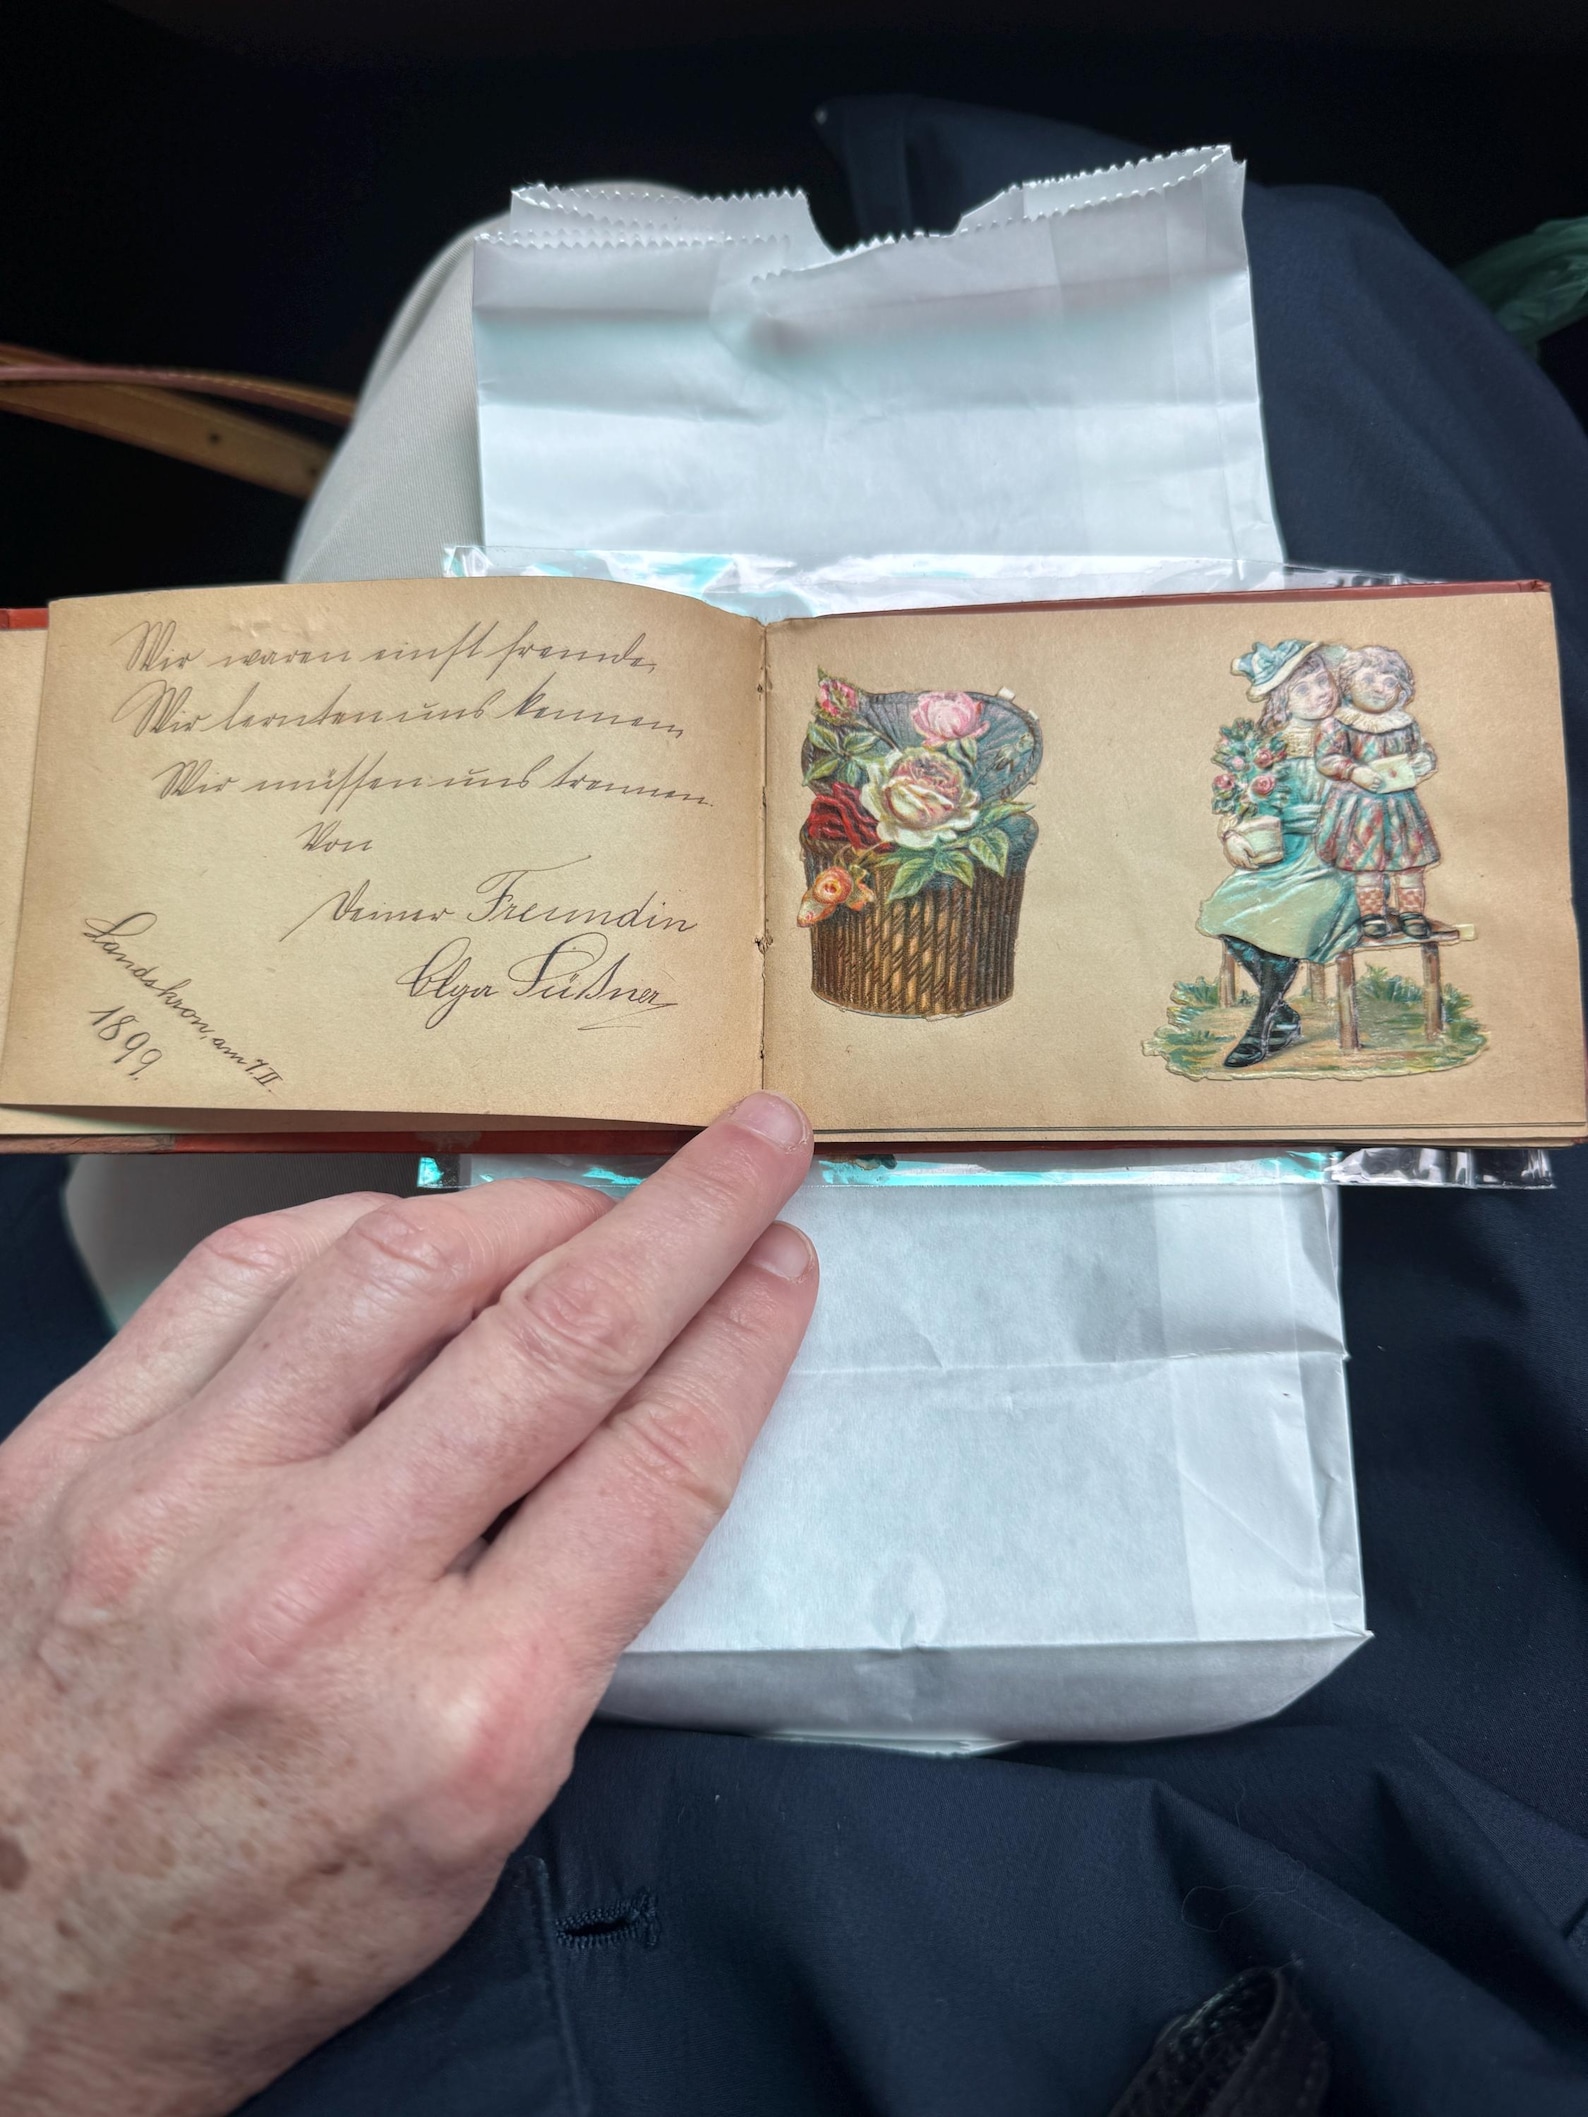 Wir waren einst fremde,
Wir lernten uns kennen,
Wir müssen uns trennen.
Von
Deiner Freundin
Olga Süßner
Landskron, am 7. II.
1899.